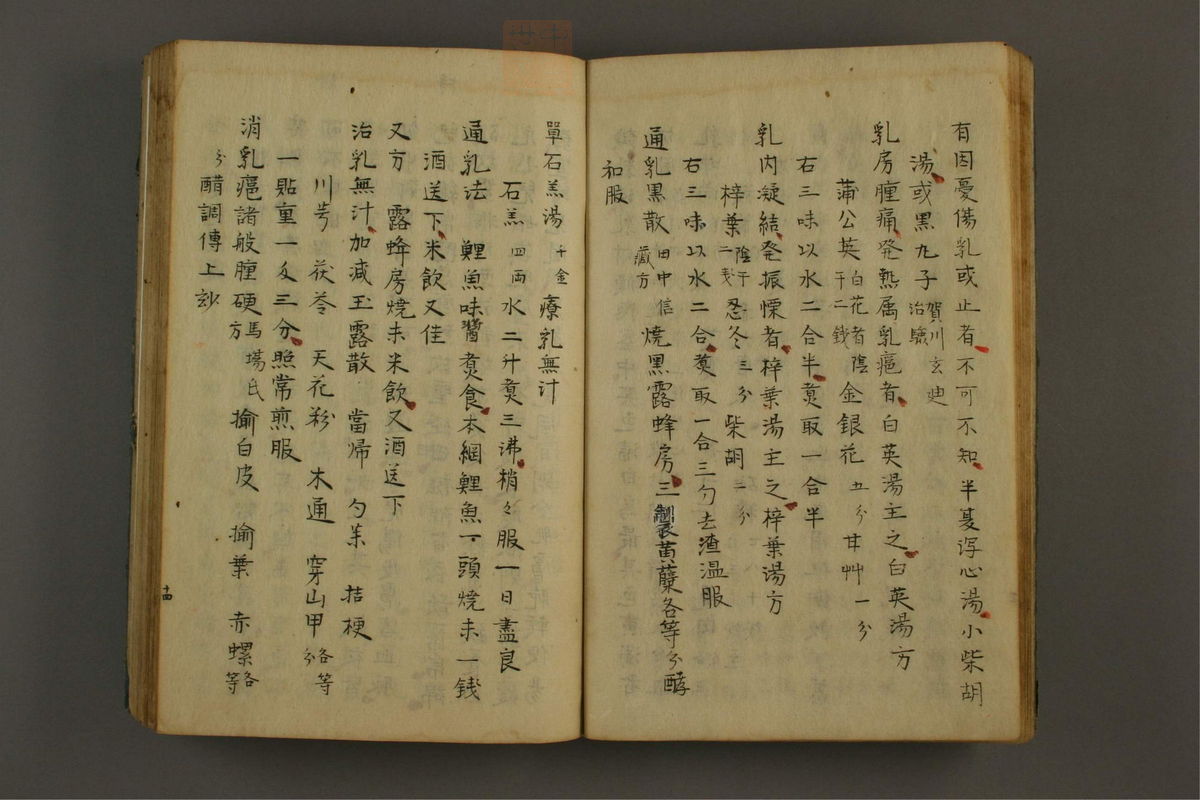 有因憂傷乳或止者不可不知半夏泻心湯小柴胡
湯或黒丸子賀川玄迪治驗
乳房腫痛発熱属乳癰者白英湯主之白英湯方
蒲公英白花者陰干二錢金銀花五分甘艸一分
右三味以水二合半煑取一合半
乳内凝結発振慄者梓葉湯主之梓葉湯方
梓葉陰干二戔忍冬三分柴胡一分
右三味以水二合煑取一合三勺去渣温服
通乳黒散田中信藏方焼黒露蜂房三製黄蘗各等分酵
和服
單石羔湯千金療乳無汁
石羔四両水二升煑三沸梢々服一日盡良
通乳法鯉魚味醬煑食本綱鯉魚一頭焼末一錢
酒送下米飲又佳
又方露蜂房焼末米飲又酒送下
治乳無汁加減玉露散當帰勺薬桔梗
川芎茯苓天花粉木通穿山甲各等分
一貼重一戔三分照常煎服
消乳癰諸般腫硬馬場氏方揄白皮揄葉赤螺各等
分醋調傳上
十四